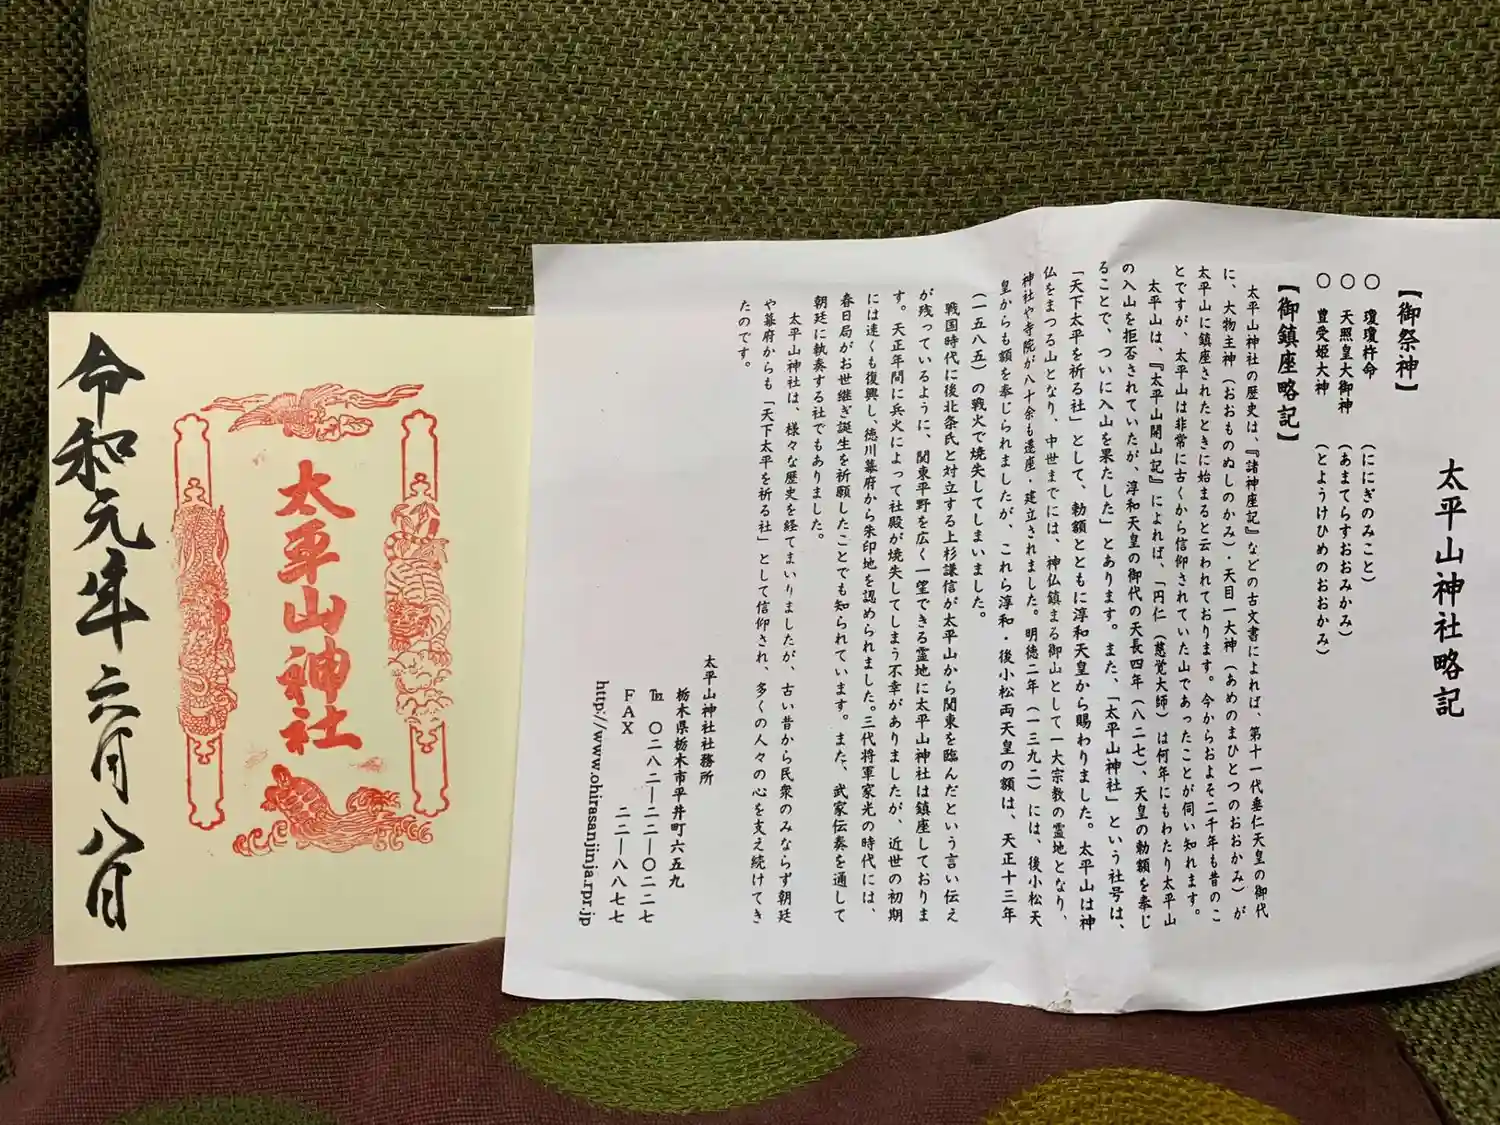 太平山神社略記
【御祭神】
○ 瓊瓊杵命 (ににぎのみこと)
○ 天照皇大御神 (あまてらすおおみかみ)
○ 豊受姫大神 (とようけひめのおおかみ)
【御鎮座略記】
太平山神社の歴史は、『諸神座記』などの古文書によれば、第十一代垂仁天皇の御代
に、大物主神(おおものぬしのかみ)・天目一大神(あめのまひとつのおおかみ)が
太平山に鎮座されたときに始まると云われております。今からおよそ二千年も昔のこ
とですが、太平山は非常に古くから信仰されていた山であったことが伺い知れます。
太平山は、『太平山開山記』によれば、「円仁(慈覚大師)は何年にもわたり太平山
の入山を拒否されていたが、淳和天皇の御代の天長四年(八二七)、天皇の勅額を奉じ
ることで、ついに入山を果たした」とあります。また、「太平山神社」という社号は、
「天下太平を祈る社」として、勅額とともに淳和天皇から賜わりました。太平山は神
仏をまつる山となり、中世までには、神仏鎮まる御山として一大宗教の霊地となり、
神社や寺院が八十余も遷座・建立されました。明徳二年(一三九二)には、後小松天
皇からも額を奉じられましたが、これら淳和・後小松両天皇の額は、天正十三年
(一五八五)の戦火で焼失してしまいました。
戦国時代に後北条氏と対立する上杉謙信が太平山から関東を臨んだという言い伝え
が残っているように、関東平野を広く一望できる霊地に太平山神社は鎮座しておりま
す。天正年間に兵火によって社殿が焼失してしまう不幸がありましたが、近世の初期
には速くも復興し、徳川幕府から朱印地を認められました。三代将軍家光の時代には、
春日局がお世継ぎ誕生を祈願したことでも知られています。また、武家伝奏を通して
朝廷に執奏する社でもありました。
太平山神社は、様々な歴史を経てまいりましたが、古い昔から民衆のみならず朝廷
や幕府からも「天下太平を祈る社」として信仰され、多くの人々の心を支え続けてき
たのです。
太平山神社社務所
栃木県栃木市平井町六五九
℡ 〇二八二―二二―〇二二七
FAX 二二―八八七七
http://www.ohirasanjinja.rpr.jp
太平山神社
令和元年六月八日